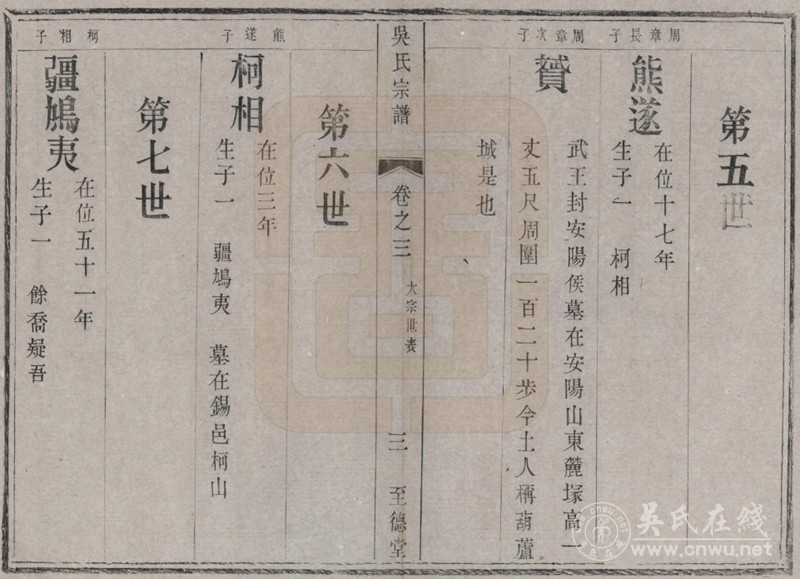 第五世
周章長子
熊遂
在位十七年
生子一　柯相
周章次子
贇
武王封安陽侯墓在安陽山東麓塚高一
丈五尺周圍一百二十步今土人稱葫蘆
城是也
吳氏宗譜
卷之三
大宗世表
三
至德堂
第六世
熊遂子
柯相
在位三年
生子一　疆鳩夷　墓在錫邑柯山
第七世
柯相子
疆鳩夷
在位五十一年
生子一　餘喬疑吾
吳氏在线
www.cnwu.net